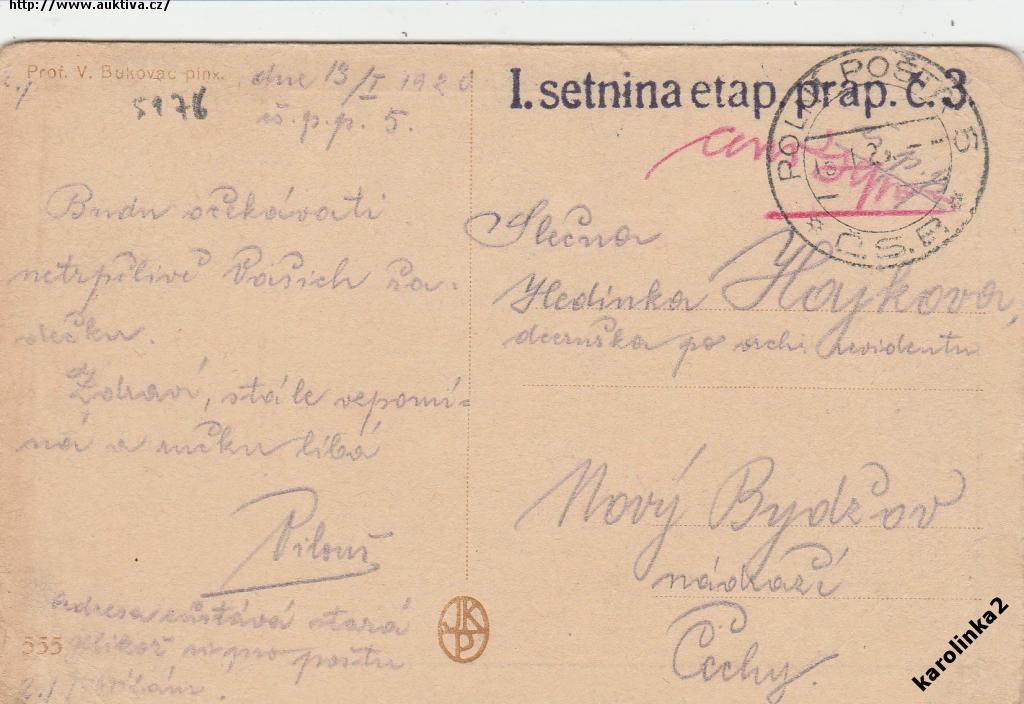 http://www.auktiva.cz/
Prof. V. Bukovac pinx.
dne 13/I 1920
č. p. p. 5.
5976
I. setnina etap. prap. č. 3
POLNÍ POSTA 5
Č.S.R.
Budu očekávati
netrpělivě Vašich řá-
dečku.
Zdraví, stále vzpomí-
ná a ručku líbá
adresa zůstává stará
555
JKP
Slečna
Hedinka Hajkova,
dceruška po revidentu
Nový Bydžov
nádraží
Čechy.
karolinka2